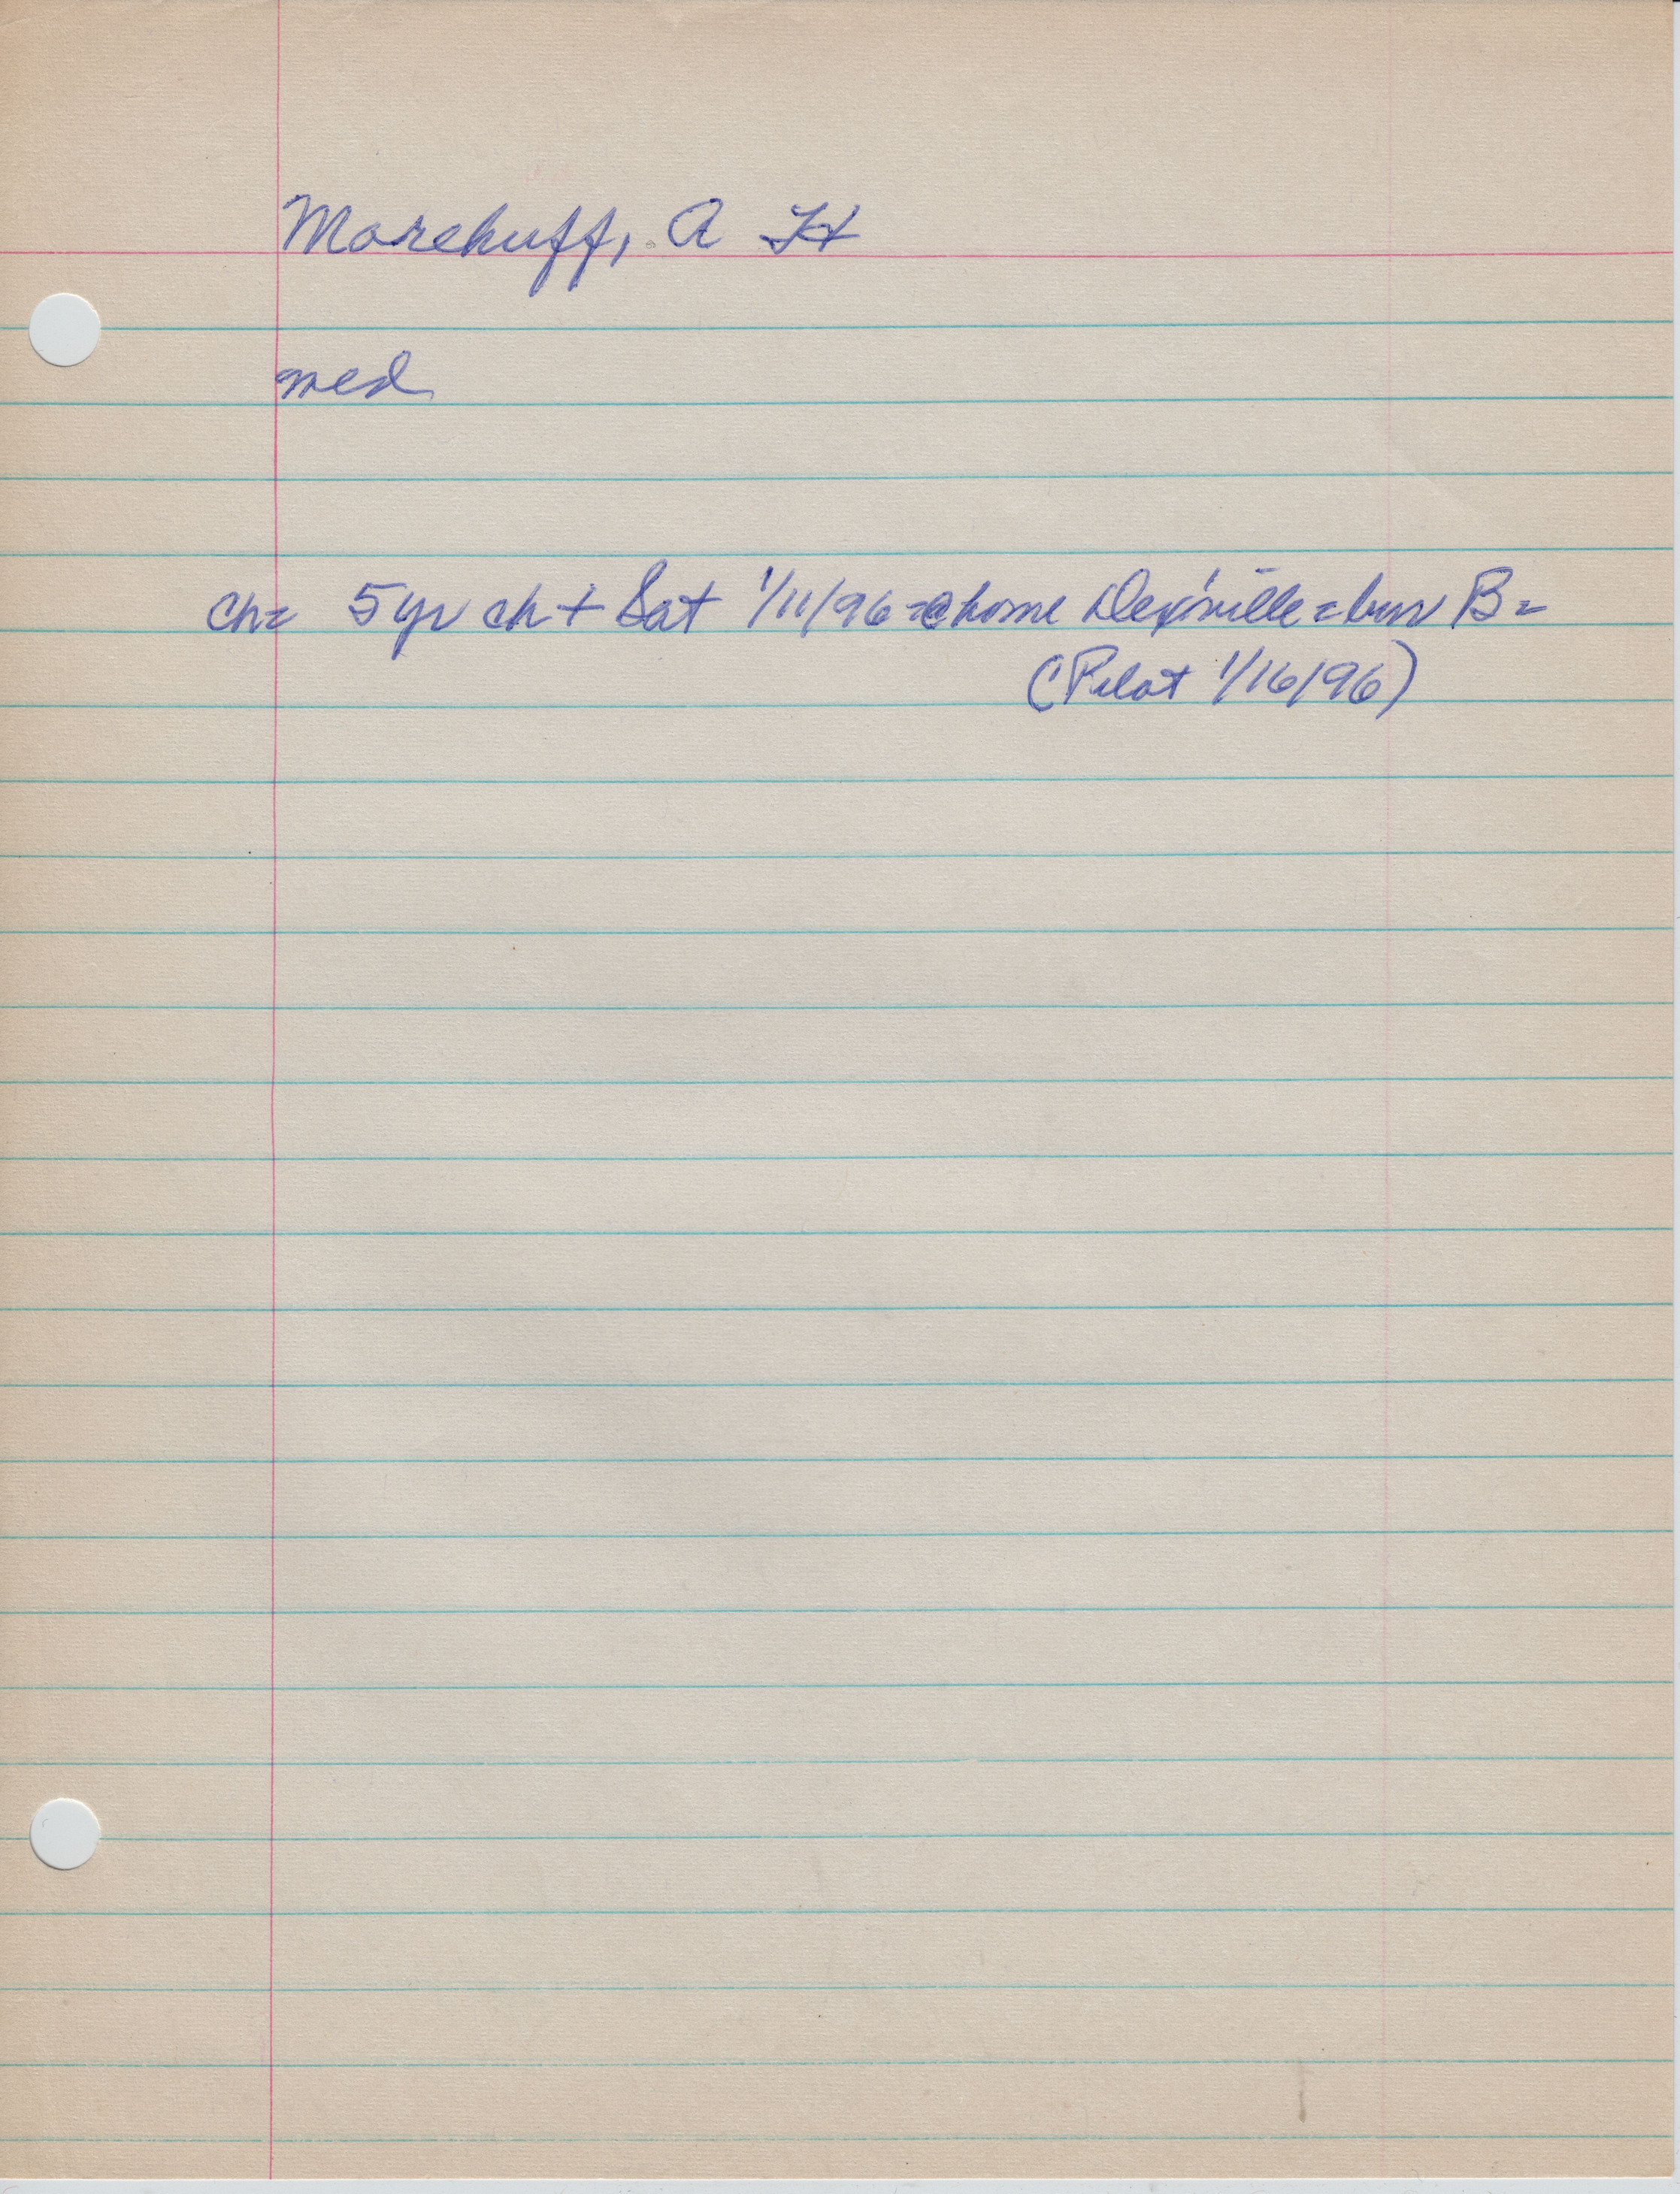 Morehuff, A H
med
ch= 5 yr ch + Sat 1/11/96 = @ home Dexville = bur B=
(Pilot 1/16/96)